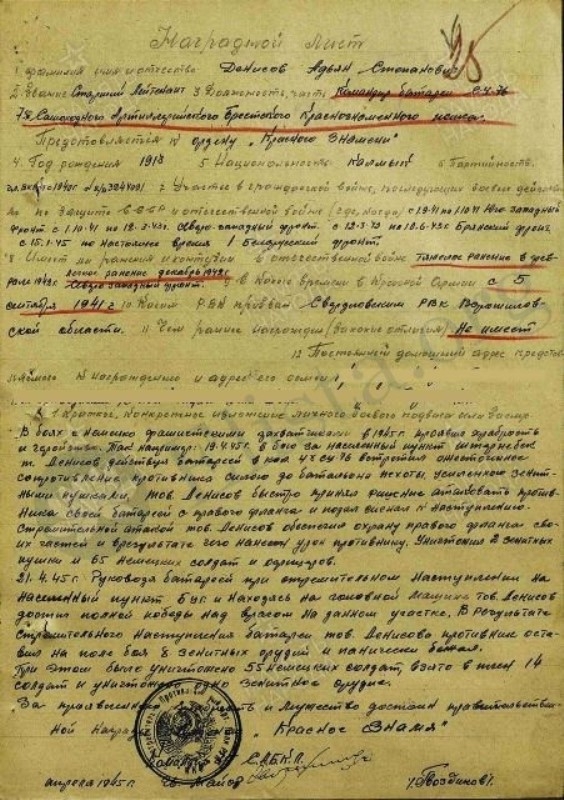 Наградной Лист
1. Фамилия имя и отчество Денисов Адьян Степанович
2. Звание Старший Лейтенант 3. Должность, часть Командир батареи СУ-76
Самоходного Артиллерийского Брестского Краснознаменного полка.
Представляется к ордену „Красного Знамени"
4. Год рождения 1918 5. Национальность Калмык 6. Партийность.
7. Участие в гражданской войне, последующих боевых действи-
ях по защите СССР и отечественной войне (где, когда) с 1.9.41 по 1.10.41 Юго Западный
фронт с 1.10.41 по 12.3.43г. Северо-западный фронт. с 12.3.43 по 10.6.43г. Брянский фронт,
с 15.1.45 по настоящее время 1 Белорусский фронт.
8. Имеет ли ранения и контузии в отечественной войне Тяжелое ранение в фев-
рале 1942г. легкое ранение декабрь 1942г.
Северо западный фронт. 9. С какого времени в Красной Армии с 5
сентября 1941 г 10. Каким РВК призван Свердловским РВК Ворошилов-
ской области. 11. Чем ранее награжден (за какие отличия) Не имеет
12. Постоянный домашний адрес представ-
ляемого к награждению и адрес его семьи
1. Краткое, конкретное изложение личного боевого подвига или заслуг
В боях с немецко фашистскими захватчиками в 1945г. проявил храбрость
и геройство. Так например: 19.4.45г. в бою за населенный пункт
т. Денисов действуя батареей в кол. 4 СУ 76 встретил ожесточенное
сопротивление противника силою до батальона пехоты, усиленного зенит-
ными пушками, тов. Денисов быстро принял решение атаковать против-
ника своей батареей с правого фланга и подал сигнал к наступлению.
Стремительной атакой тов. Денисов обеспечил охрану правого фланга сво-
их частей и в результате чего нанесен урон противнику. Уничтожил 2 зенитных
пушки и 65 немецких солдат и офицеров.
21.4.45г. Руководя батареей при стремительном наступлении на
населенный пункт Буг. и находясь на головной машине тов. Денисов
достиг полной победы над врагом на данном участке. В результате
стремительного наступления батареи тов. Денисова противник оста-
вил на поле боя 8 зенитных орудий и панически бежал.
При этом было уничтожено 55 немецких солдат, взято в плен 14
солдат и уничтожено одно зенитное орудие.
За проявленную и мужество достоин правительствен-
ной награды „Красное Знамя"
С.А.Б.К.П.
Гв. Майор
апреля 1945г.